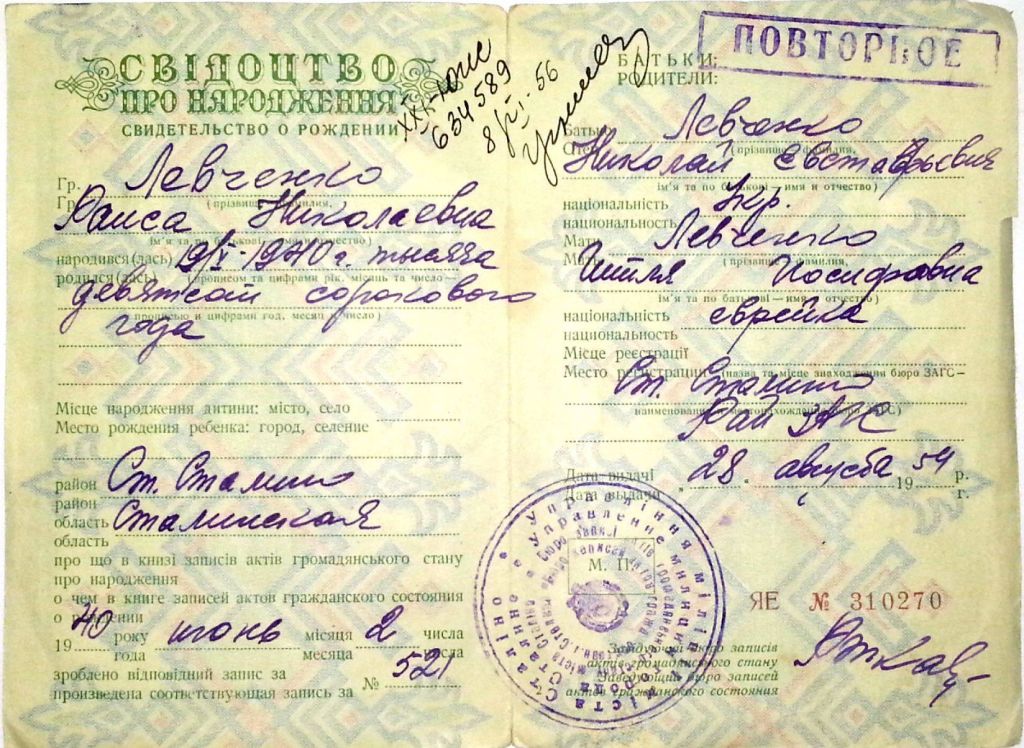 СВІДОЦТВО
ПРО НАРОДЖЕННЯ
СВИДЕТЕЛЬСТВО О РОЖДЕНИИ
XXX-
634589
8/VI-56
Гр. Левченко
Гр. (прізвище - фамилия,
Раиса Николаевна
ім'я та по батькові - имя и отчество)
народився(лась) 19/V-1940 г. тысяча
родился(лась) (прописом та цифрами рік, місяць та число -
девятсот сорокового
прописью и цифрами год, месяц и число)
года
Місце народження дитини: місто, село
Место рождения ребенка: город, селение
район Ст. Сталино
район
область Сталинская
область
про що в книзі записів актів громадянського стану
про народження
о чем в книге записей актов гражданского состояния
о рождении
1940 року июнь місяця 2 числа
года месяца числа
зроблено відповідний запис за
произведена соответствующая запись за № 521
ПОВТОРНОЕ
БАТЬКИ:
РОДИТЕЛИ:
Батько Левченко
Отец (прізвище - фамилия,
Николай Евставьевич
ім'я та по батькові - имя и отчество)
національність Укр.
национальность
Мати Левченко
Мать (прізвище - фамилия,
Иосифовна
ім'я та по батькові — имя и отчество)
національність еврейка
национальность
Місце реєстрації
Место регистрации (назва та місце знаходження бюро ЗАГС -
Ст. Сталино
наименование и местонахождение бюро ЗАГС)
Рай ЗАГС
Дата видачі 28 августа 1954 р.
Дата выдачи г.
М. П.
ЯЕ № 310270
Завідуючий бюро записів
актів громадянського стану
Заведующий бюро записей
актов гражданского состояния